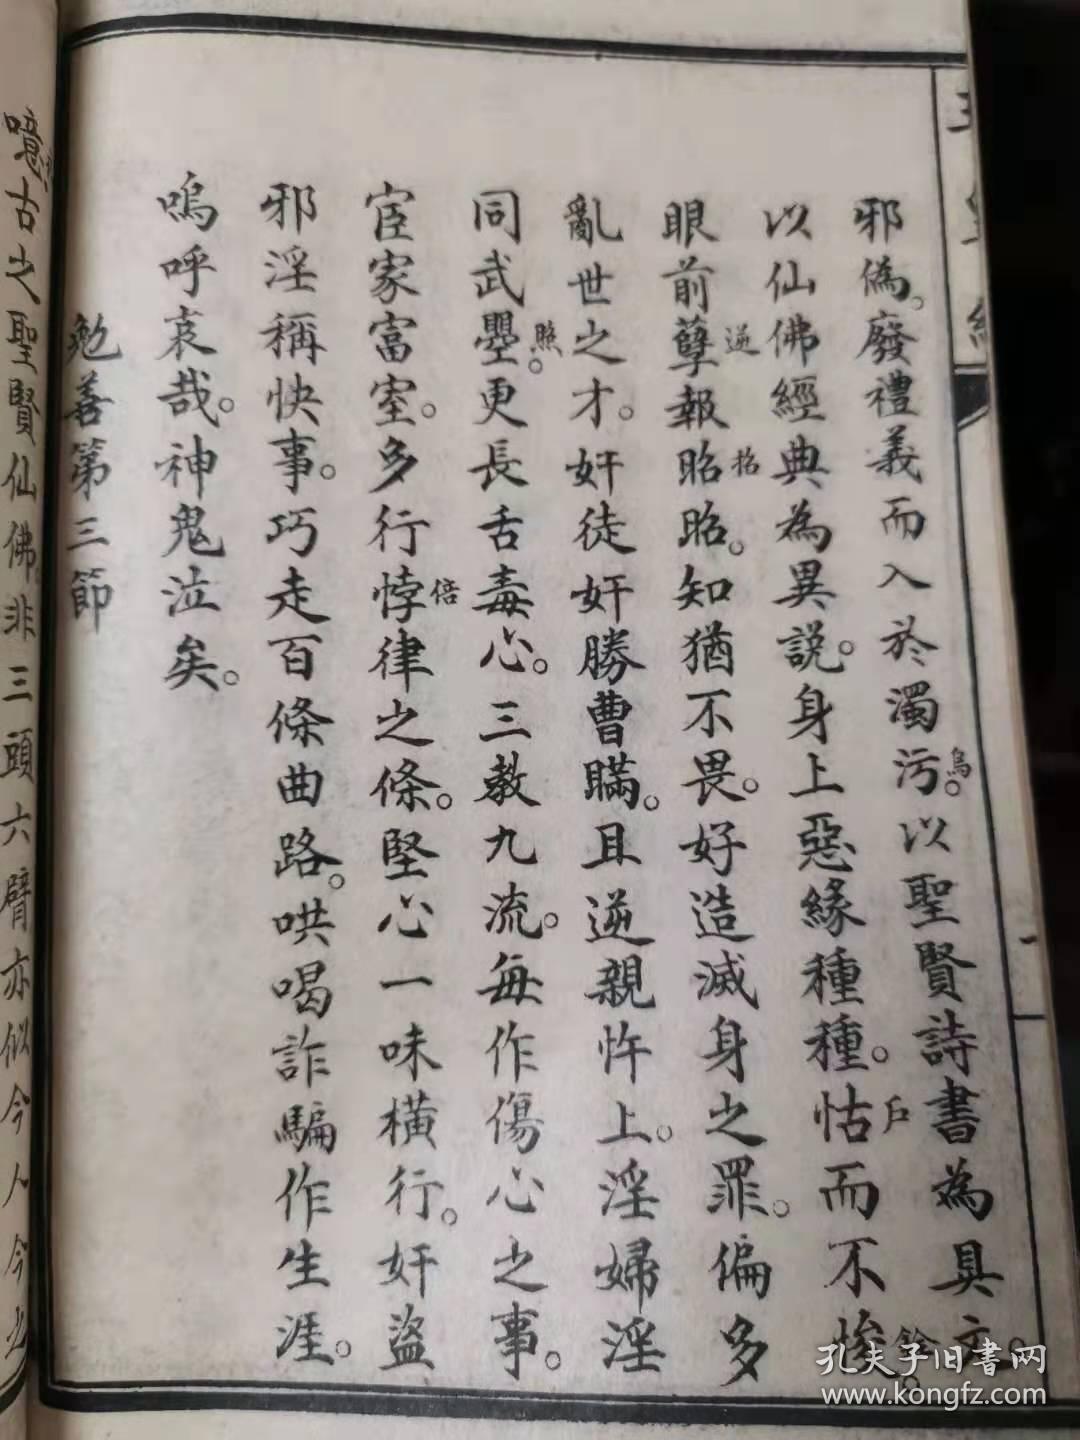 邪偽。廢禮義而入於濁污。以聖賢詩書為具文。
烏
以仙佛經典為異說。身上惡緣種種。怙而不悛。
戶
眼前孽報昭昭。知猶不畏。好造滅身之罪。偏多
逆
招
亂世之才。奸徒奸勝曹瞞。且逆親忤上。淫婦淫
同武曌。更長舌毒心。三教九流。每作傷心之事。
照
宦家富室。多行悖律之條。堅心一味橫行。奸盜
倍
邪淫稱快事。巧走百條曲路。哄喝詐騙作生涯。
嗚呼哀哉。神鬼泣矣。
勉善第三節
噫古之聖賢仙佛非三頭六臂亦似今人今
孔夫子旧書网
www.kongfz.com